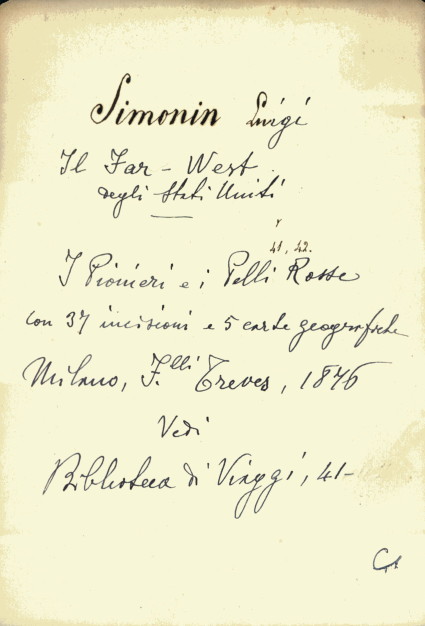 Simonin Luigi
Il Far-West
degli Stati Uniti
41, 42.
I Pionieri e i Pelli Rosse
con 37 incisioni e 5 carte geografiche
Milano, F.lli Treves, 1876
Vedi
Biblioteca di Viaggi, 41-